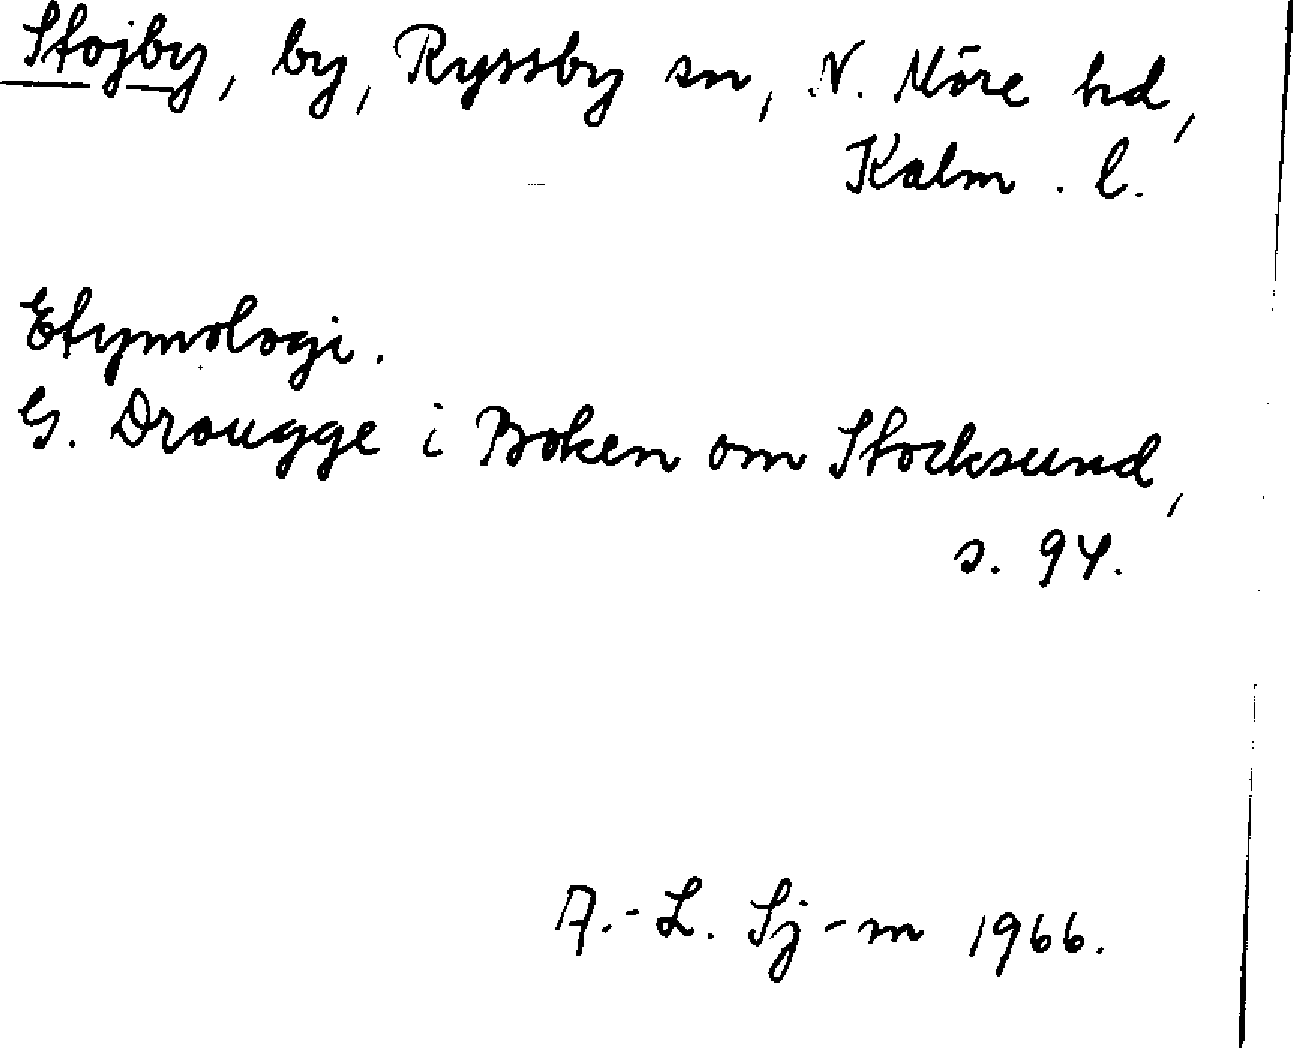 Stojby, by, Ryssby sn, N. Möre hd,
Kalm. l.
Etymologi.
G. Drougge i Boken om Stocksund,
s. 94.
A.-L. Sj-m 1966.